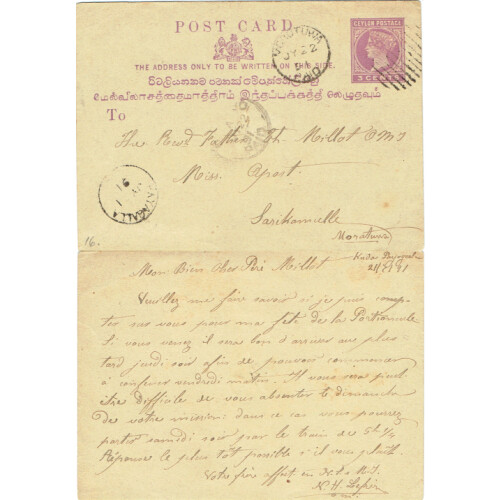 POST CARD
CEYLON POSTAGE
3 CENTS
MORATUWA
JY 22
THE ADDRESS ONLY TO BE WRITTEN ON THIS SIDE.
மேல்விலாசத்தைமாத்திரம் இந்தப்பக்கத்தில் எழுதவும்
To
The Revd Father Ch. Millot OMI
Miss. Apost.
Moratuwa
16.
91
Mon Bien Cher Père Millot
Veuillez me faire savoir si je puis comp-
ter sur vous pour ma fête de la Portioncule
Si vous venez il sera bon d'arriver au plus
tard jeudi soir afin de pouvoir commencer
à confesser vendredi matin. Il vous sera peut
être difficile de vous absenter le dimanche
de votre mission: dans ce cas vous pourrez
partir samedi soir par le train de 5h ¼
Réponse le plus tôt possible s'il vous plait.
Votre frère affect en
o.m.i.